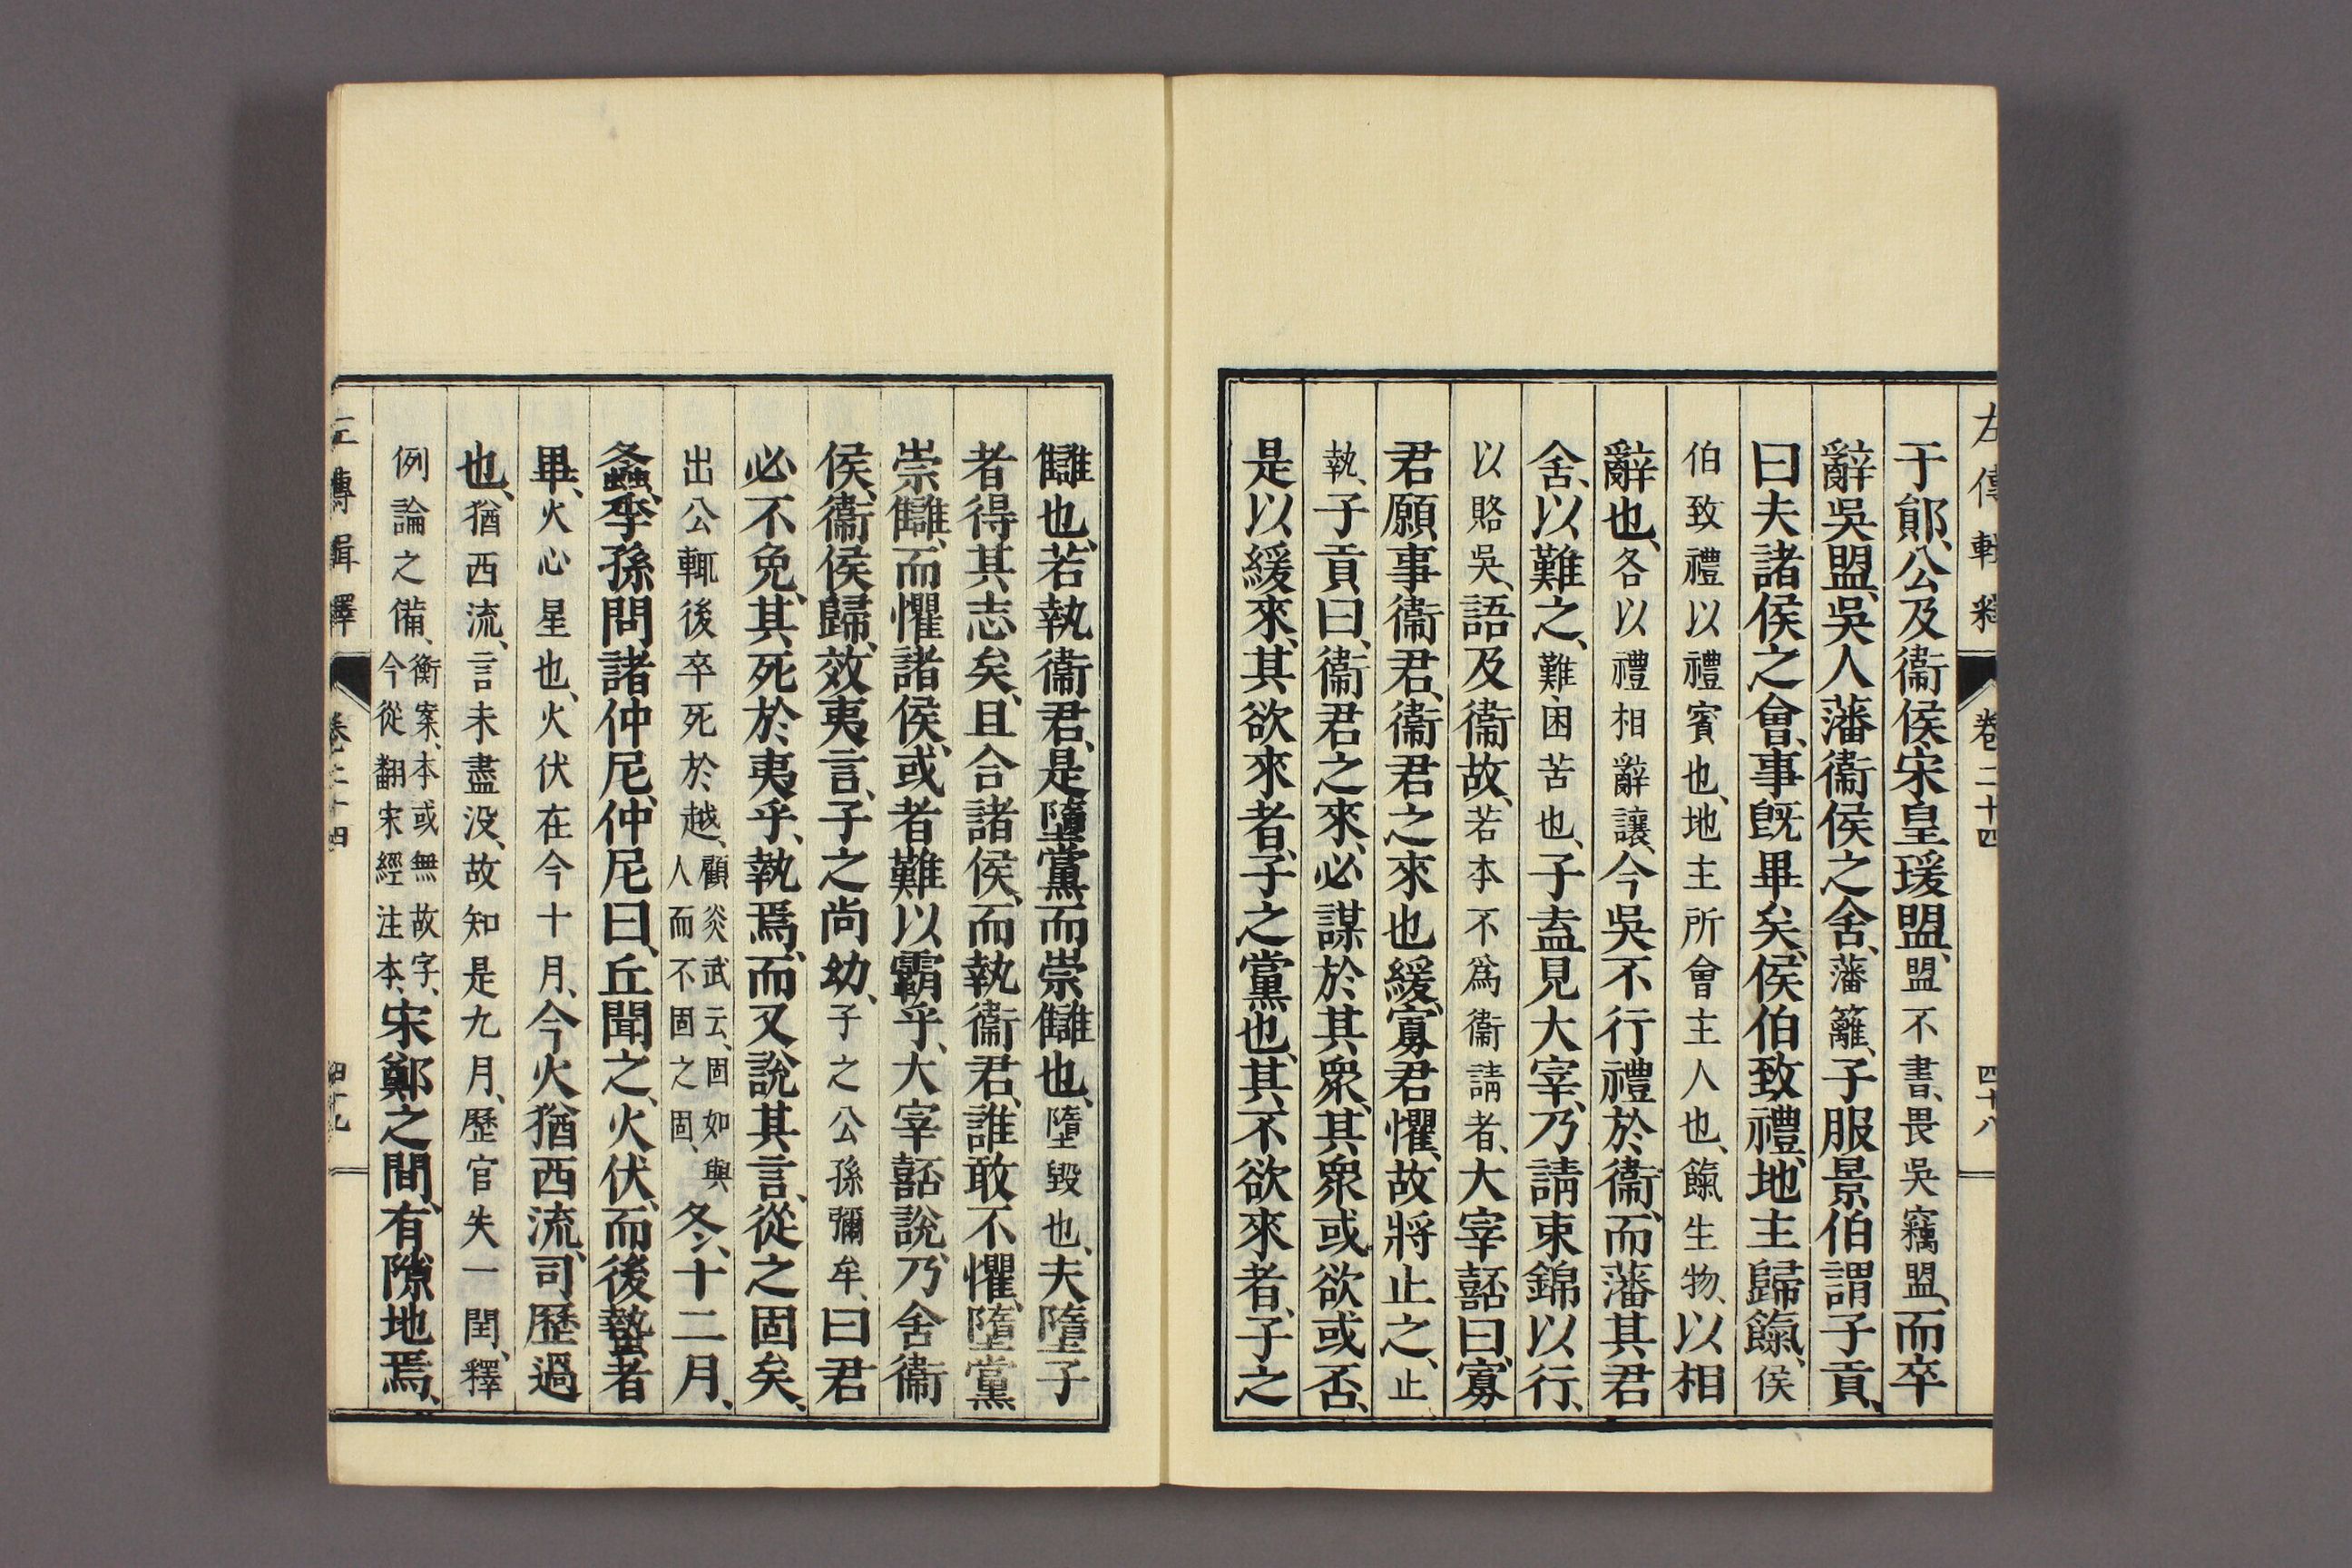 左傳輯釋 卷二十四 四十八
于鄖、公及衞侯宋皇瑗盟、盟不書、畏吳竊盟、而卒
辭吳盟、吳人藩衞侯之舍、藩籬、子服景伯謂子貢、
曰夫諸侯之會、事既畢矣、侯伯致禮、地主歸餼、侯
伯致禮以禮賓也、地主所會主人也、餼生物、以相
辭也、各以禮相辭讓、今吳不行禮於衞、而藩其君
舍、以難之、難困苦也、子盍見大宰、乃請束錦以行、
以賂吳、語及衞故、若本不爲衞請者、大宰嚭曰、寡
君願事衞君、衞君之來也緩、寡君懼、故將止之、止
執、子貢曰、衞君之來、必謀於其衆、其衆或欲或否、
是以緩來、其欲來者、子之黨也、其不欲來者、子之
讎也、若執衞君、是墮黨而崇讎也、墮毀也、夫墮子
者得其志矣、且合諸侯、而執衞君、誰敢不懼、墮黨
崇讎、而懼諸侯、或者難以霸乎、大宰嚭說、乃舍衞
侯、衞侯歸、效夷言、子之尚幼、子之公孫彌牟、曰君
必不免、其死於夷乎、執焉、而又說其言、從之固矣、
出公輒後卒死於越、顧炎武云、固如與人而不固之固、冬、十二月、
螽、季孫問諸仲尼、仲尼曰、丘聞之、火伏、而後蟄者
畢、火心星也、火伏在今十月、今火猶西流、司歷過
也、猶西流、言未盡没、故知是九月、歷官失一閏、釋
例論之備、衡案、本或無故字、今從翻宋經注本、宋鄭之間、有隙地焉、
左傳輯釋 卷二十四 四十九